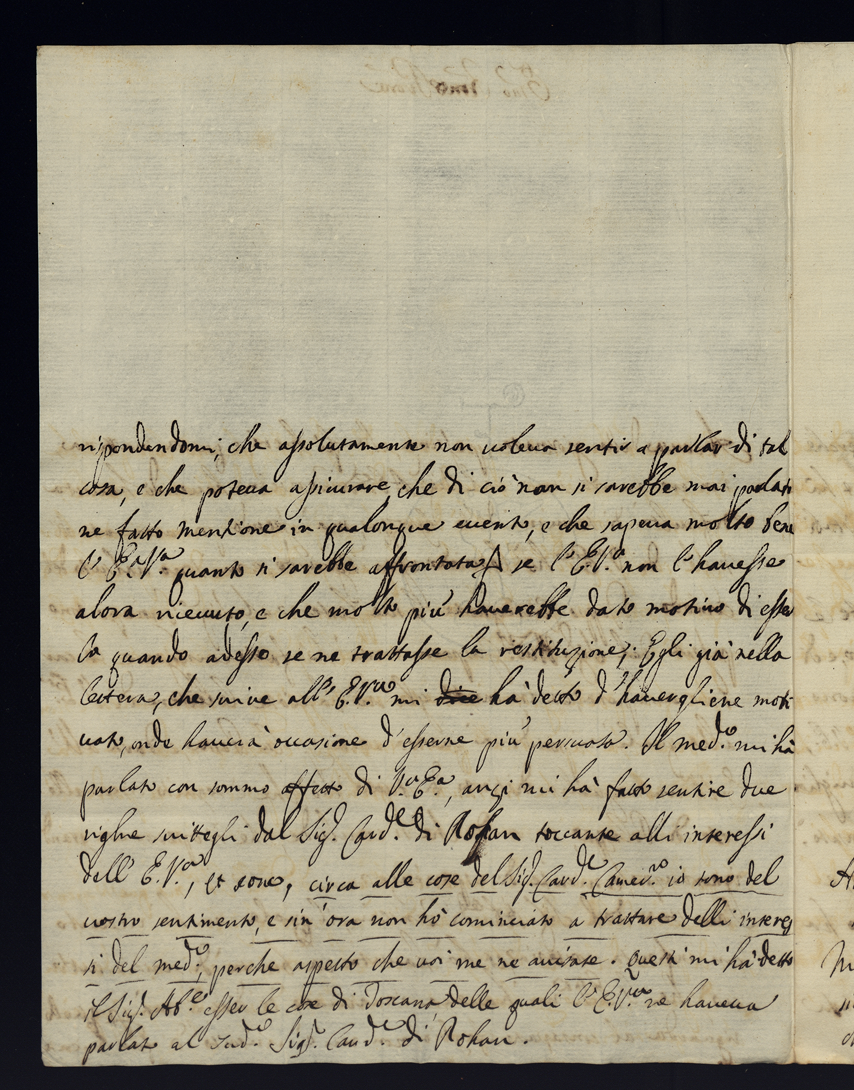 rispondendomi, che assolutamente non voleva sentir a parlar di tal
cosa, e che poteva assicurare che di ciò non si sarebbe mai parlato
ne fatto mentione in qualonque evento, e che sapeva molto bene
l'E.a V.a quanto si sarebbe affrontata se l'E.V.a non l'havesse
alora ricevuto, e che molto più haverebbe dato motivo di esser
la quando adesso se ne trattasse la restituzione; Egli già nella
lettera, che scrive all'E.V.ra mi dice hà detto d'havergliene moti
vato, onde haverà occasione d'esserne più persuaso. Il med.o mi hà
parlato con sommo affetto di V.a E.a, anzi mi hà fatto sentire due
righe scrittegli dal Sig.r Card.le di Rohan toccante alli interessi
dell'E.V.a, et sono, circa alle cose del Sig.r Card.le Camer.o io sono del
vostro sentimento, e sin'ora non hò cominciato a trattare delli interes
si del med.o, perche aspetto che voi me ne avisate. Questi mi hà detto
il Sig.r Ab.e esser le cose di Toscana delle quali l'E.V.ra ne haveva
parlato al sud.o Sig.r Card.le di Rohan.